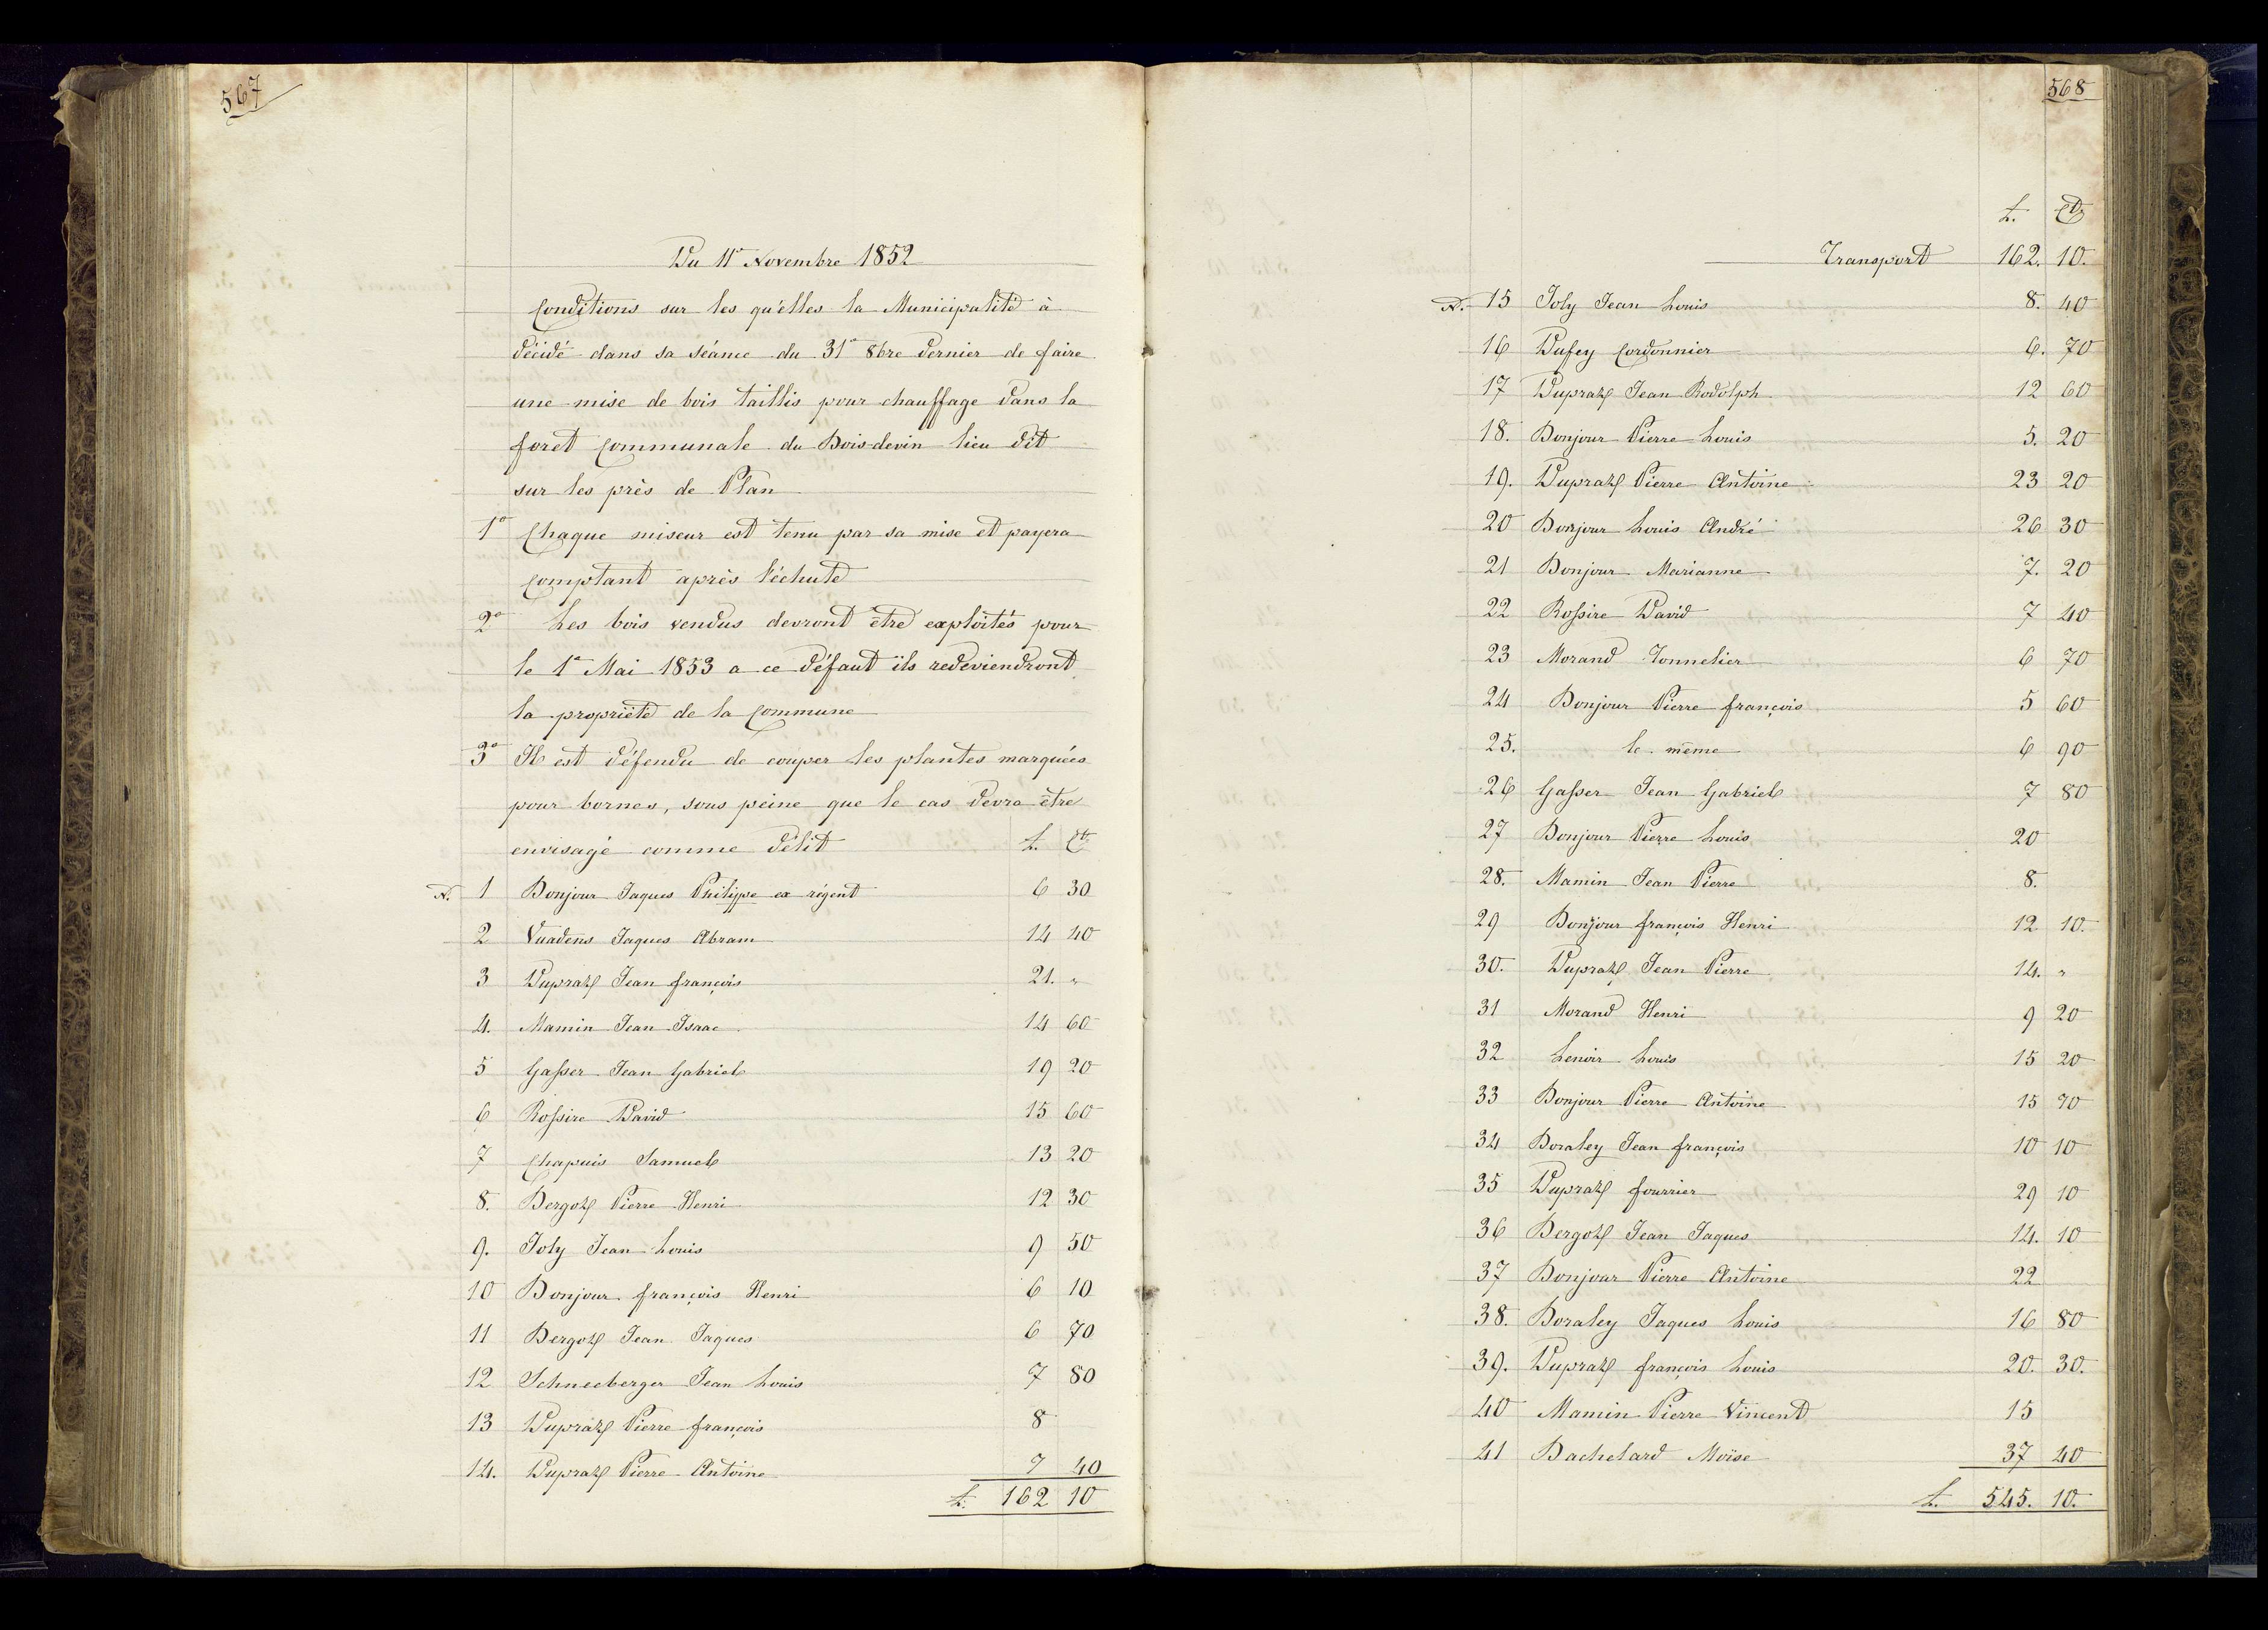 567
Du 11e Novembre 1852
Conditions sur les qu'elles la Municipalité à
décidé dans sa séance du 31e 8bre dernier de faire
une mise de bois taillis pour chauffage dans la
foret Communale du Bois-devin lieu dit
sur les près de Plan
1o Chaque miseur est tenu par sa mise et payera
comptant après l'échute
2o Les bois vendus devront être exploités pour
le 1er Mai 1853 a ce défaut ils redeviendront
la propriété de la Commune
3o Il est défendu de couper les plantes marquées
pour bornes, sous peine que le cas devra être
envisagé comme délit f. Ct
N. 1 Bonjour Jaques Philippe ex régent 6 30
2 Vuadens Jaques Abram 14 40
3 Dupratz Jean françois 21. "
4. Mamin Jean Isaac 14 60
5 Gasser Jean Gabriel 19 20
6 Rossire David 15 60
7 Chapuis Samuel 13 20
8. Bergotz Pierre Henri 12 30
9. Joly Jean Louis 9 50
10 Bonjour françois Henri 6 10
11 Bergotz Jean Jaques 6 70
12 Schneeberger Jean Louis 7 80
13 Dupratz Pierre françois 8
14. Dupratz Pierre Antoine 7 40
f. 162 10
568
f. Ct
Transport 162. 10.
N. 15 Joly Jean Louis 8. 40
16 Dufey Cordonnier 6. 70
17 Dupratz Jean Rodolph 12 60
18. Bonjour Pierre Louis 5. 20
19. Dupratz Pierre Antoine 23 20
20 Bonjour Louis André 26 30
21 Bonjour Marianne 7. 20
22 Rossire David 7 40
23 Morand Tonnelier 6 70
24 Bonjour Pierre françois 5 60
25. le même 6 90
26 Gasser Jean Gabriel 7 80
27 Bonjour Pierre Louis 20
28. Mamin Jean Pierre 8.
29 Bonjour françois Henri 12 10.
30. Dupratz Jean Pierre 14. "
31 Morand Henri 9 20
32 Lenoir Louis 15 20
33 Bonjour Pierre Antoine 15 70
34 Boraley Jean françois 10 10
35 Dupratz fourrier 29 10
36 Bergotz Jean Jaques 14. 10
37 Bonjour Pierre Antoine 22
38. Boraley Jaques Louis 16 80
39. Dupratz françois Louis 20. 30.
40 Mamin Pierre Vincent 15
41 Bachelard Moïse 37 40
f. 545. 10.